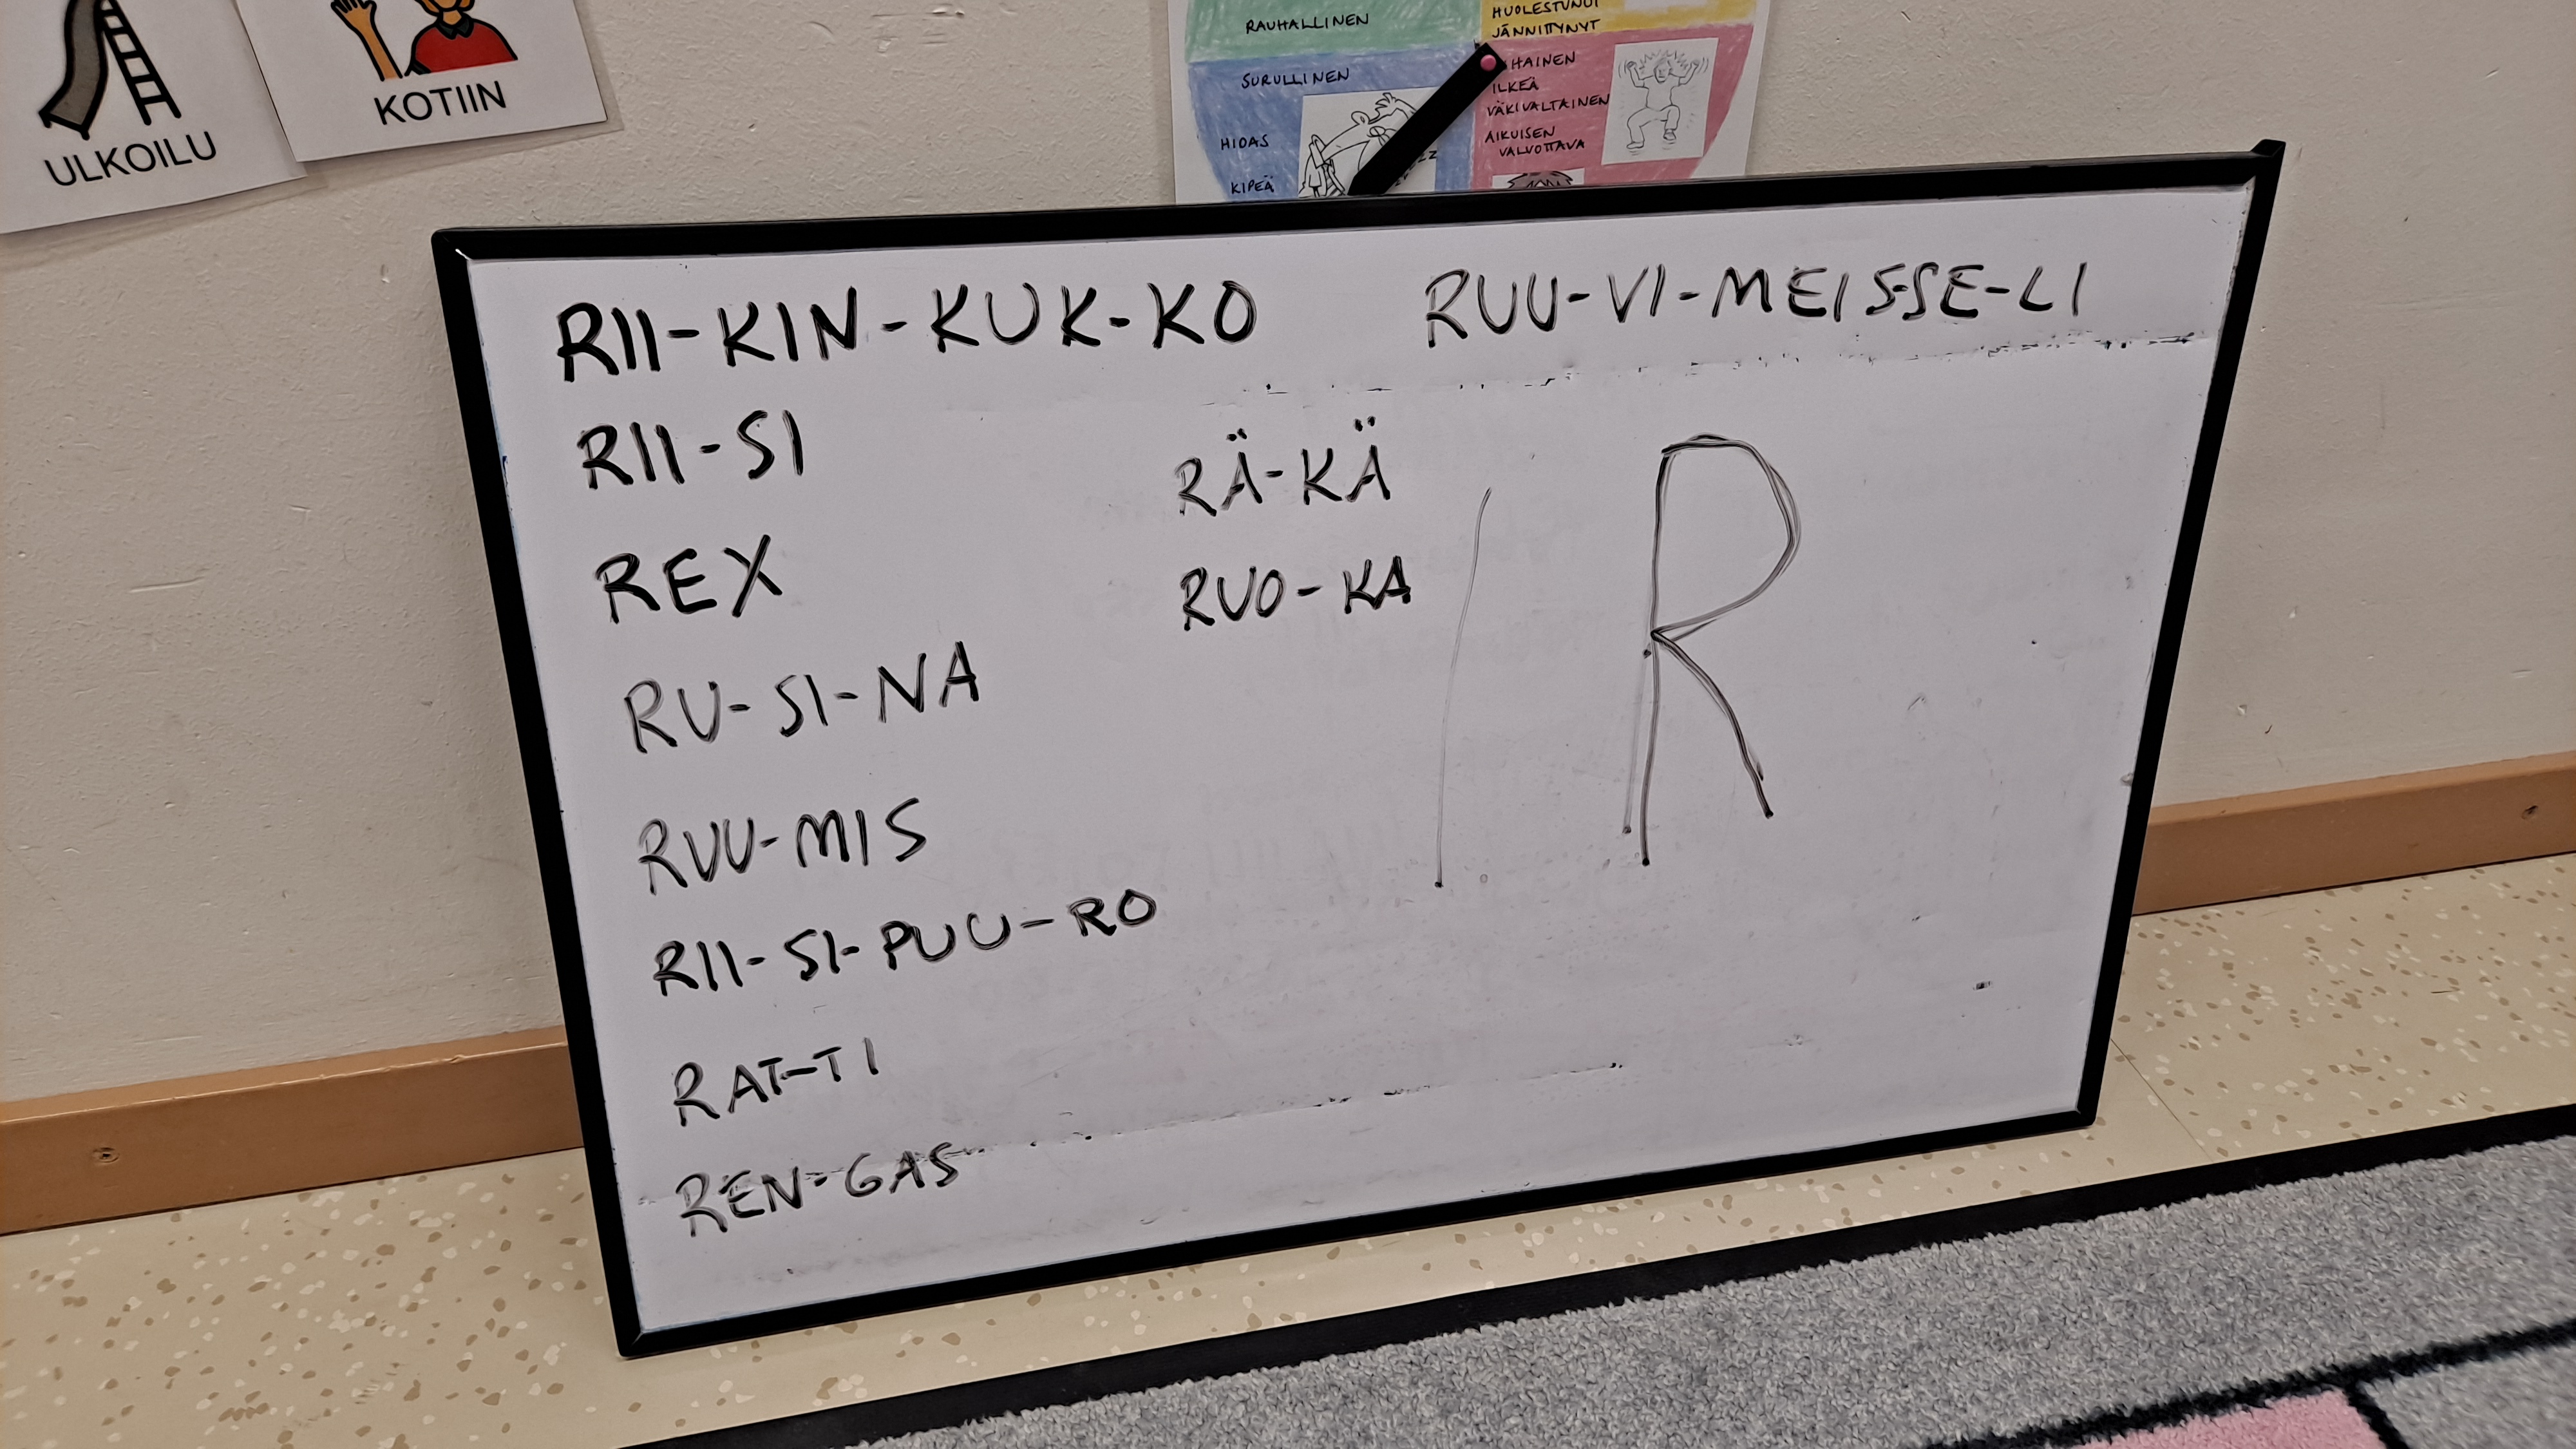 ULKOILU
KOTIIN
RAUHALLINEN
SURULLINEN
HIDAS
KIPEÄ
HUOLESTUNUT
JÄNNITTYNYT
ILKEÄ
VÄKIVALTAINEN
AIKUISEN
VALVOTTAVA
RII-KIN-KUK-KO
RUU-VI-MEIS-SE-LI
RII-SI
RÄ-KÄ
REX
RUO-KA
R
RU-SI-NA
RUU-MIS
RII-SI-PUU-RO
RAT-TI
REN-GAS